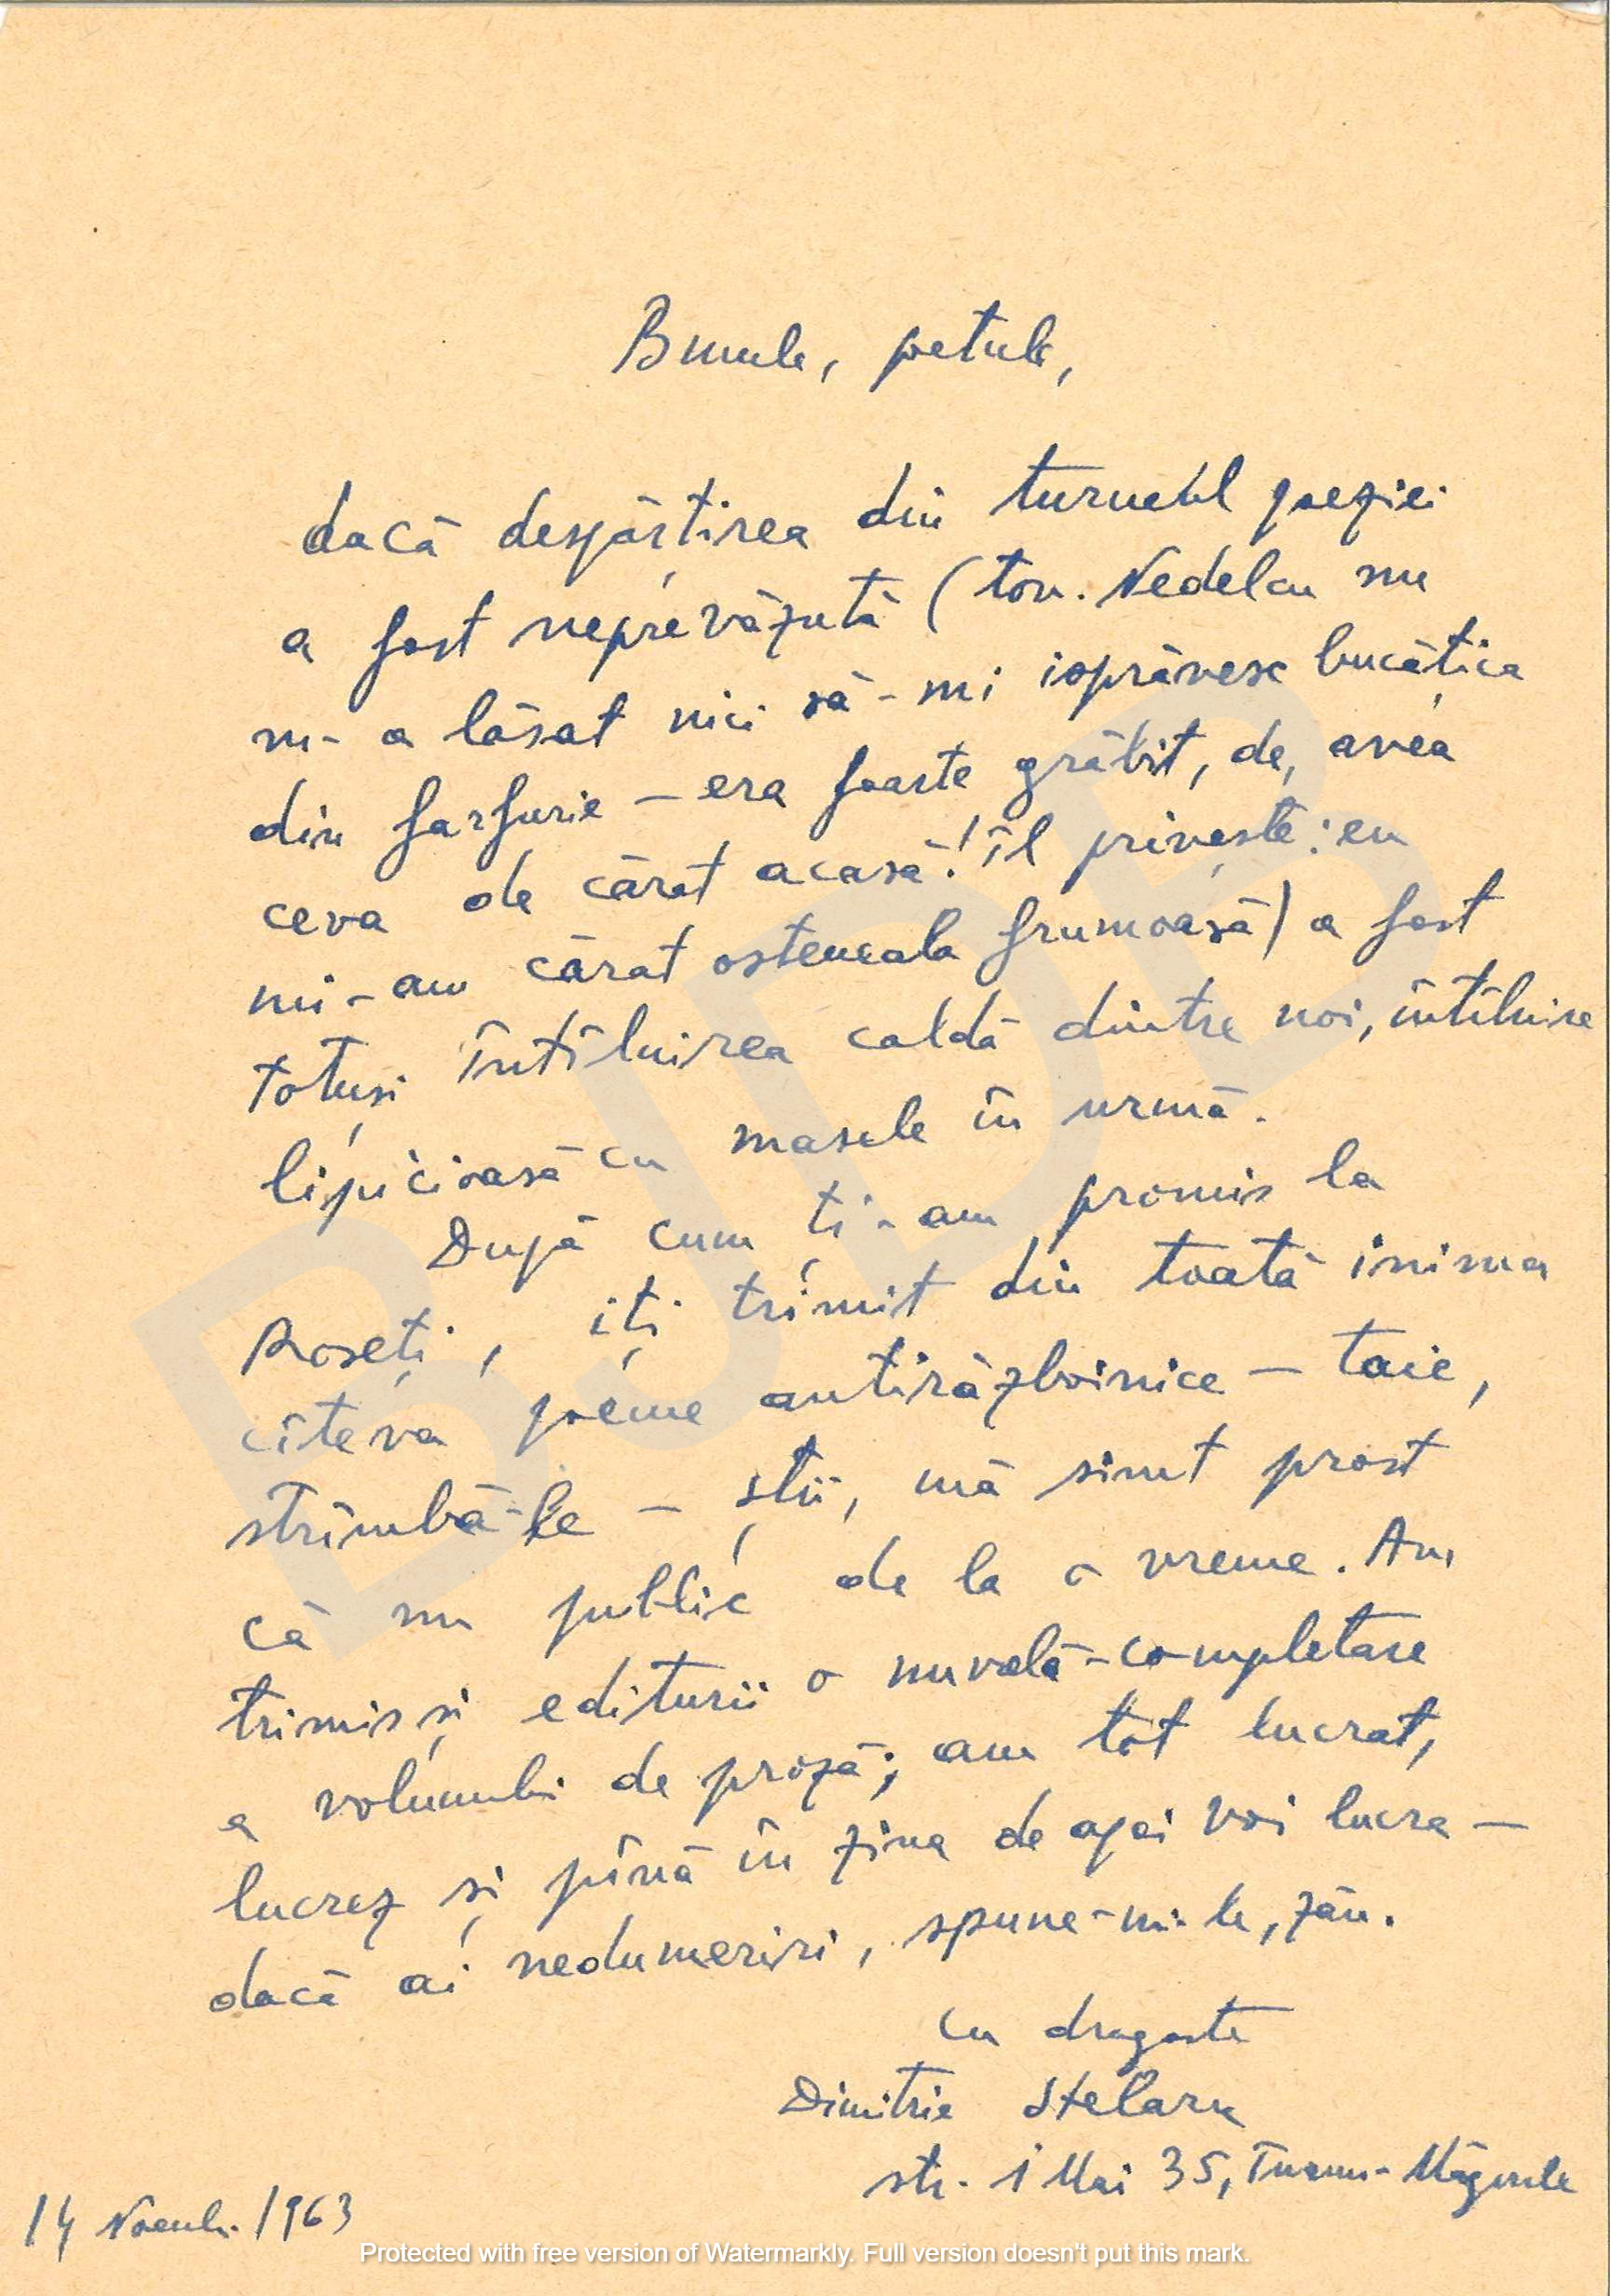 Bunule, poetule,
dacă despărțirea din turneul poeziei
a fost neprevăzută (tov. Nedelcu nu
m-a lăsat nici să-mi isprăvesc bucățica
din farfurie — era foarte grăbit, de, avea
ceva de cărat acasă! îl privește: eu
mi-am cărat osteneala frumoasă) a fost
totuși întîlnirea caldă dintre noi, întîlnire
lipicioasă cu masele în urmă.
După cum ți-am promis la
Roseți, iți trimit din toată inima
cîteva poeme antirăzboinice — taie,
strîmbă-le — știi, mă simt prost
că nu public de la o vreme. Am
trimis și editurii o nuvelă-completare
a volumului de proză; am tot lucrat,
lucrez și pînă în ziua de apoi voi lucra —
dacă ai nedumeriri, spune-mi-le, zău.
cu dragoste
Dimitrie Stelaru
str. 1 Mai 35, Turnu-Măgurele
14 Noemb. 1963
BJDB
Protected with free version of Watermarkly. Full version doesn't put this mark.